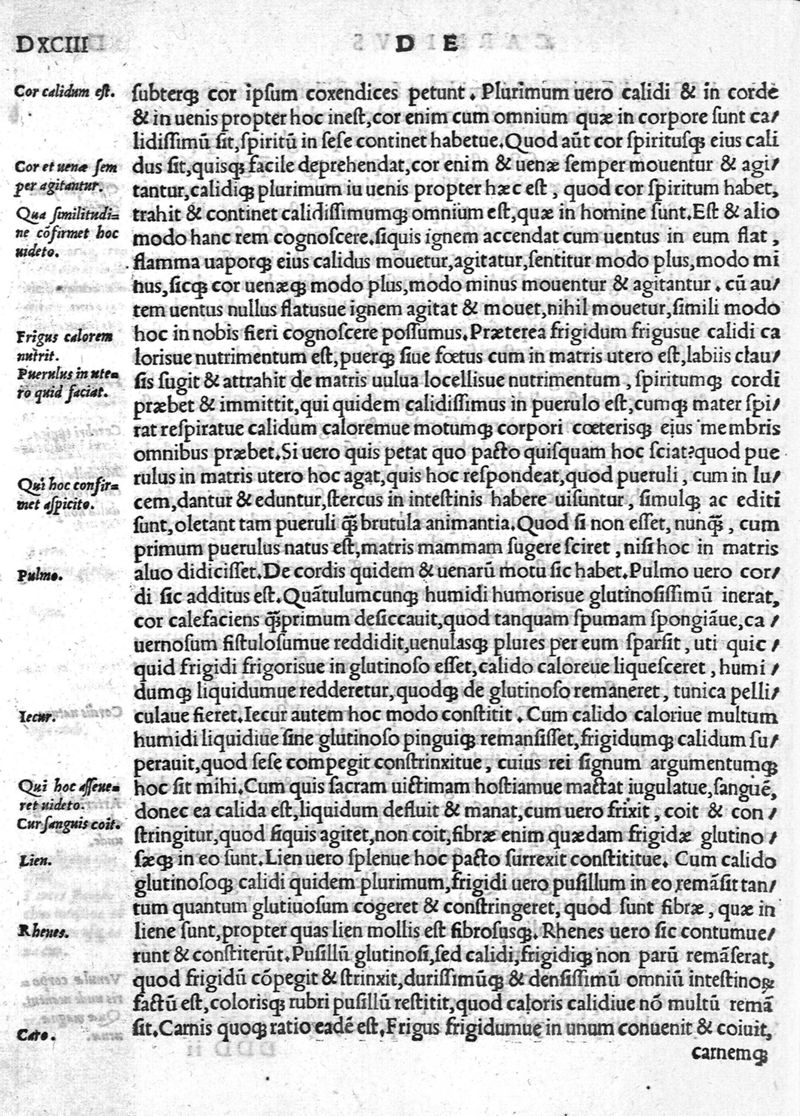 DXCIII
D E
Cor calidum est.
Cor et uenæ sem
per agitantur.
Qua similitudi=
ne cõfirmet hoc
uideto.
Frigus calorem
nutrit.
Puerulus in ute=
ro quid faciat.
Qui hoc confir=
met aspicito.
Pulmo.
Iecur.
Qui hoc asseue=
ret uideto.
Cur sanguis coit.
Lien.
Rhenes.
Caro.
ſubterq; cor ipſum coxendices petunt. Plurimum uero calidi & in corde
& in uenis propter hoc ineſt, cor enim cum omnium quæ in corpore ſunt ca/
lidiſſimũ ſit, ſpiritũ in ſeſe continet habetue. Quod aũt cor ſpirituſq; eius cali
dus ſit, quiſq; facile deprehendat, cor enim & uenæ ſemper mouentur & agi/
tantur, calidiq; plurimum iu uenis propter hæc eſt, quod cor ſpiritum habet,
trahit & continet calidiſſimumq; omnium eſt, quæ in homine ſunt. Eſt & alio
modo hanc rem cognoſcere. ſiquis ignem accendat cum uentus in eum flat,
flamma uaporq; eius calidus mouetur, agitatur, ſentitur modo plus, modo mi
nus, ſicq; cor uenæq; modo plus, modo minus mouentur & agitantur. cũ au/
tem uentus nullus flatusue ignem agitat & mouet, nihil mouetur, ſimili modo
hoc in nobis fieri cognoſcere poſſumus. Præterea frigidum frigusue calidi ca
lorisue nutrimentum eſt, puerq; ſiue fœtus cum in matris utero eſt, labiis clau/
ſis ſugit & attrahit de matris uulua locellisue nutrimentum, ſpiritumq; cordi
præbet & immittit, qui quidem calidiſſimus in puerulo eſt, cumq; mater ſpi/
rat reſpiratue calidum caloremue motumq; corpori cœteriſq; eius membris
omnibus præbet. Si uero quis petat quo pacto quiſquam hoc ſciat? quod pue
rulus in matris utero hoc agat, quis hoc reſpondeat, quod pueruli, cum in lu/
cem, dantur & eduntur, ſtercus in inteſtinis habere uiſuntur, ſimulq; ac editi
ſunt, oletant tam pueruli q̃; brutula animantia. Quod ſi non eſſet, nunq̃;, cum
primum puerulus natus eſt, matris mammam ſugere ſciret, niſi hoc in matris
aluo didiciſſet. De cordis quidem & uenarũ motu ſic habet. Pulmo uero cor/
di ſic additus eſt. Quãtulumcunq; humidi humorisue glutinoſiſſimũ inerat,
cor calefaciens q̃;primum deſiccauit, quod tanquam ſpumam ſpongiãue, ca/
uernoſum fiſtuloſumue reddidit, uenulaſq; plures per eum ſparſit, uti quic/
quid frigidi frigorisue in glutinoſo eſſet, calido caloreue liqueſceret, humi/
dumq; liquidumue redderetur, quodq; de glutinoſo remaneret, tunica pelli/
culaue fieret. Iecur autem hoc modo conſtitit. Cum calido caloriue multum
humidi liquidiue ſine glutinoſo pinguiq; remanſiſſet, frigidumq; calidum ſu/
perauit, quod ſeſe compegit conſtrinxitue, cuius rei ſignum argumentumq;
hoc ſit mihi. Cum quis ſacram uictimam hoſtiamue mactat iugulatue, ſanguẽ,
donec ea calida eſt, liquidum defluit & manat, cum uero frixit, coit & con/
ſtringitur, quod ſiquis agitet, non coit, fibræ enim quædam frigidæ glutino/
ſæq; in eo ſunt. Lien uero ſplenue hoc pacto ſurrexit conſtititue. Cum calido
glutinoſoq; calidi quidem plurimum, frigidi uero puſillum in eo remãſit tan/
tum quantum glutiuoſum cogeret & conſtringeret, quod ſunt fibræ, quæ in
liene ſunt, propter quas lien mollis eſt fibroſuſq;. Rhenes uero ſic contumue/
runt & conſtiterũt. Puſillũ glutinoſi, ſed calidi, frigidiq; non parũ remãſerat,
quod frigidũ cõpegit & ſtrinxit, duriſſimũq; & denſiſſimũ omniũ inteſtinoꝝ
factũ eſt, coloriſq; rubri puſillũ reſtitit, quod caloris calidiue nõ multũ remã
ſit. Carnis quoq; ratio eadẽ eſt. Frigus frigidumue in unum conuenit & coiuit,
carnemq;